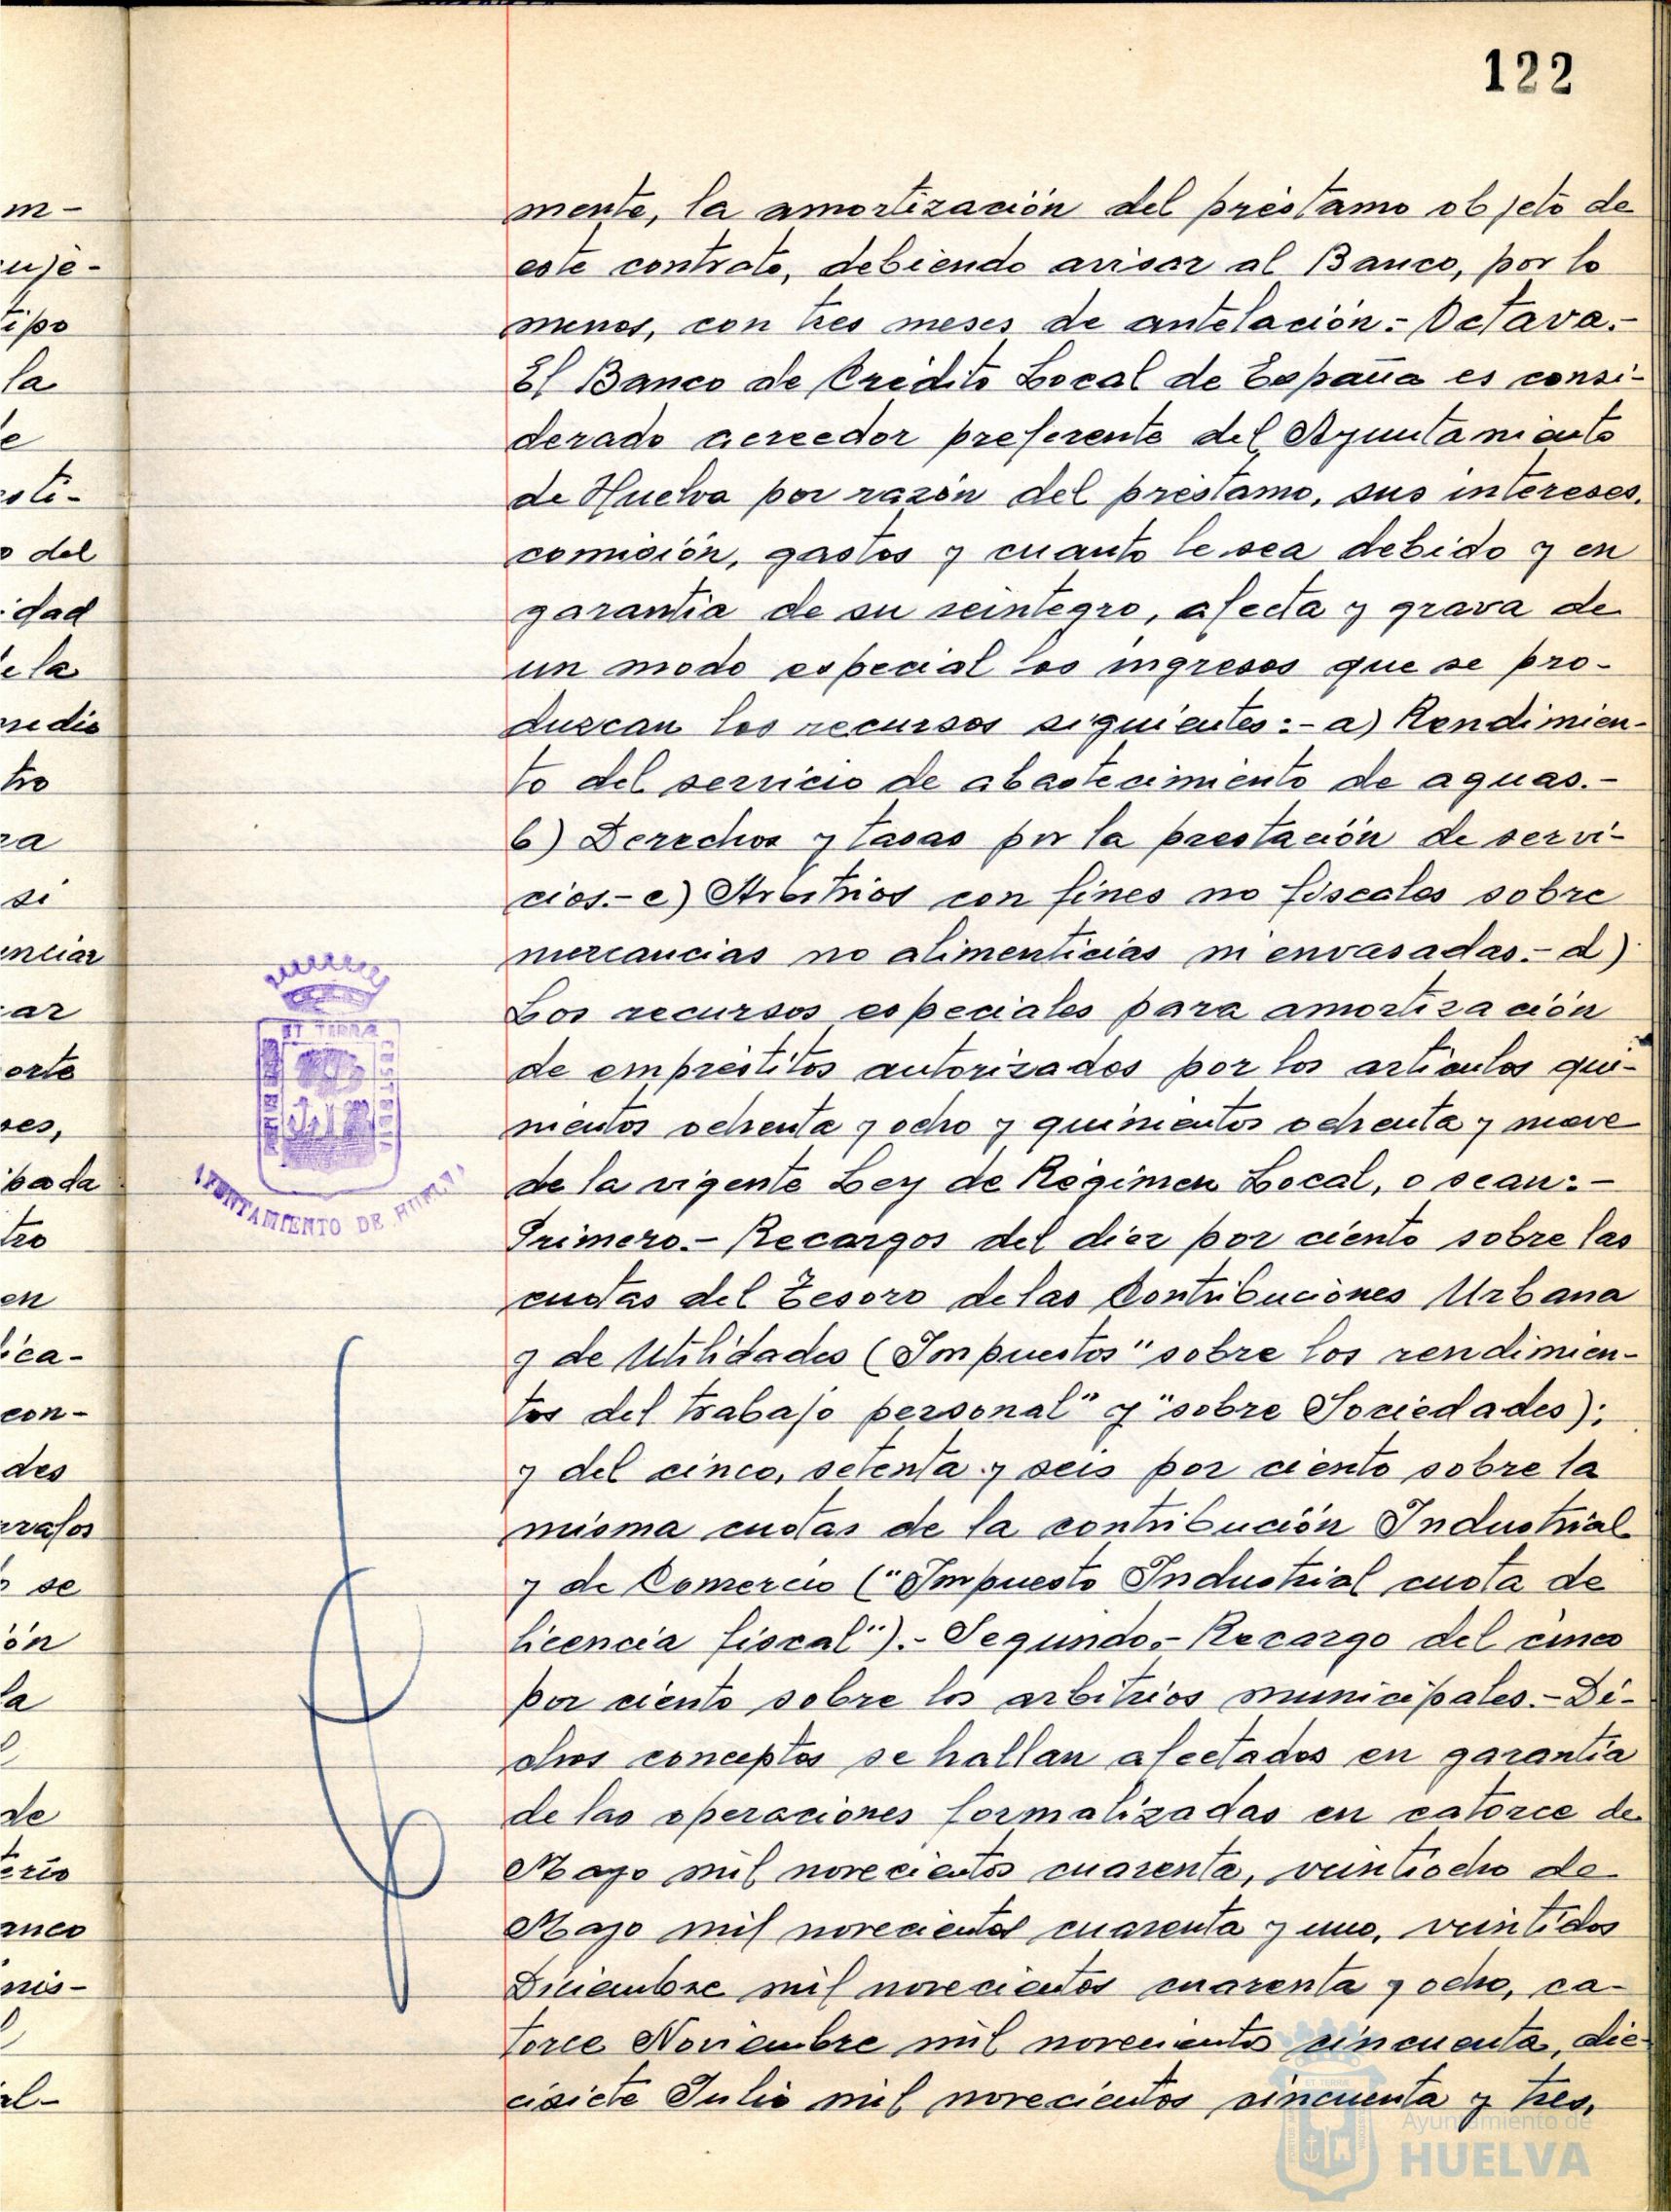 122
mente, la amortización del préstamo objeto de
este contrato, debiendo avisar al Banco, por lo
menos, con tres meses de antelación.- Octava.-
El Banco de Crédito Local de España es consi-
derado acreedor preferente del Ayuntamiento
de Huelva por razón del préstamo, sus intereses,
comisión, gastos y cuanto le sea debido y en
garantía de su reintegro, afecta y grava de
un modo especial los ingresos que se pro-
duzcan los recursos siguientes:- a) Rendimien-
to del servicio de abastecimiento de aguas.-
b) Derechos y tasas por la prestación de servi-
cios.- c) Arbitrios con fines no fiscales sobre
mercancias no alimenticias ni envasadas.- d)
Los recursos especiales para amortización
de empréstitos autorizados por los artículos qui-
nientos ochenta y ocho y quinientos ochenta y nueve
de la vigente Ley de Régimen Local, o sean:-
Primero.- Recargos del diez por ciento sobre las
cuotas del Tesoro de las Contribuciones Urbana
y de Utilidades (Impuestos "sobre los rendimien-
tos del trabajo personal" y "sobre Sociedades);
y del cinco, setenta y seis por ciento sobre la
misma cuotas de la contribución Industrial
y de Comercio ("Impuesto Industrial cuota de
licencia fiscal").- Segundo.- Recargo del cinco
por ciento sobre los arbitrios municipales.- Di-
chos conceptos se hallan afectados en garantía
de las operaciones formalizadas en catorce de
Mayo mil novecientos cuarenta, veintiocho de
Mayo mil novecientos cuarenta y uno, veintidos
Diciembre mil novecientos cuarenta y ocho, ca-
torce Noviembre mil novecientos cincuenta, die-
cisiete Julio mil novecientos cincuenta y tres,
m-
uje-
tipo
la
e
sti-
o del
idad
e la
medio
tro
ra
si
nciar
ar
orte
res,
pada
tro
en
ica-
con-
des
rafos
o se
ón
la
de
erio
anco
nis-
al-
ET TERRA
AYUNTAMIENTO DE HUELVA
Ayuntamiento de
HUELVA